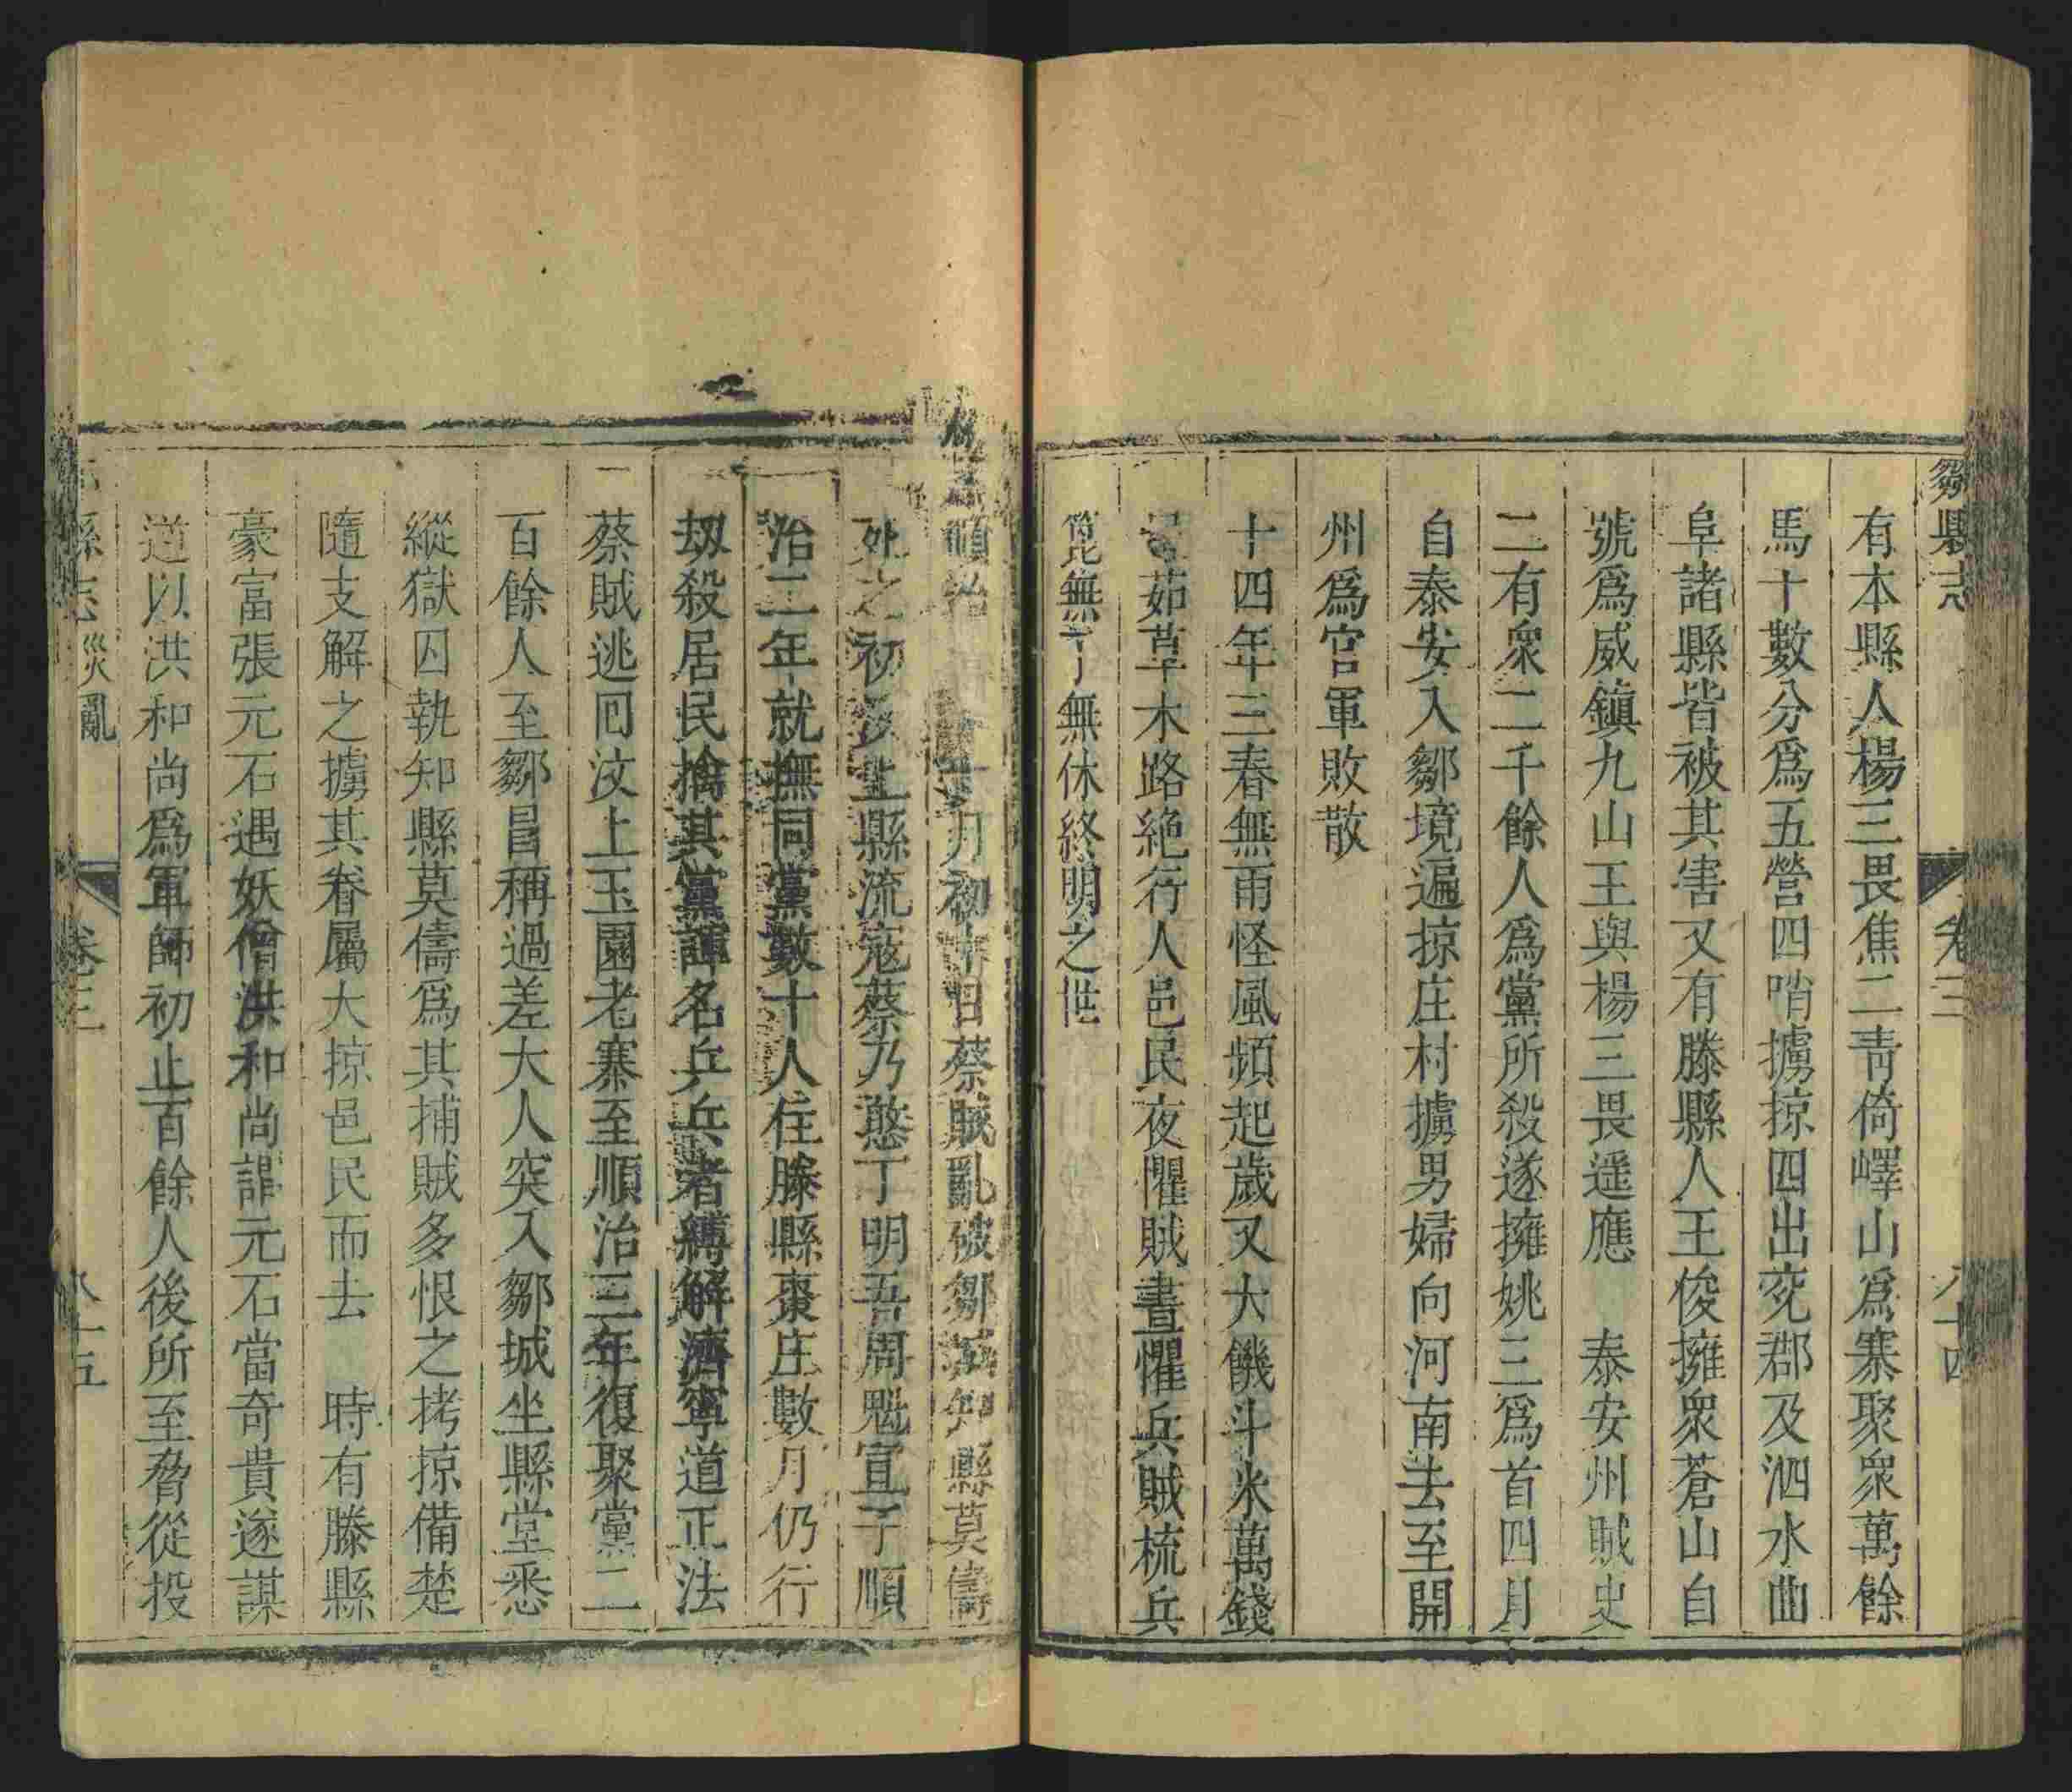 鄒縣志 卷三 八十四
有本縣人楊三畏焦二青倚嶧山爲寨聚衆萬餘
馬十數分爲五營四哨擄掠四出兖郡及泗水曲
阜諸縣皆被其害又有滕縣人王俊擁衆蒼山自
號爲威鎮九山王與楊三畏遥應 泰安州賊史
二有衆二千餘人爲黨所殺遂擁姚三爲首四月
自泰安入鄒境遍掠庄村擄男婦向河南去至開
州爲官軍敗散
十四年三春無雨怪風頻起歲又大饑斗米萬錢
茹草木路絶行人邑民夜懼賊晝懼兵賊梳兵
箆無了無休終明之世
順治 月初 日蔡賊亂破鄒 知縣莫儔
死之初汶上縣流寇蔡乃憨丁明吾周魁宣于順
治二年就撫同黨數十人住滕縣棗庄數月仍行
刼殺居民擒其黨諢名兵兵者縛解濟寧道正法
蔡賊逃回汶上玉園老寨至順治三年復聚黨二
百餘人至鄒昌稱過差大人突入鄒城坐縣堂悉
縱獄囚執知縣莫儔爲其捕賊多恨之拷掠備楚
隨支解之擄其眷屬大掠邑民而去 時有滕縣
豪富張元石遇妖僧洪和尚謂元石當奇貴遂謀
道以洪和尚爲軍師初止百餘人後所至脅從投
縣志 災亂 卷三 八十五